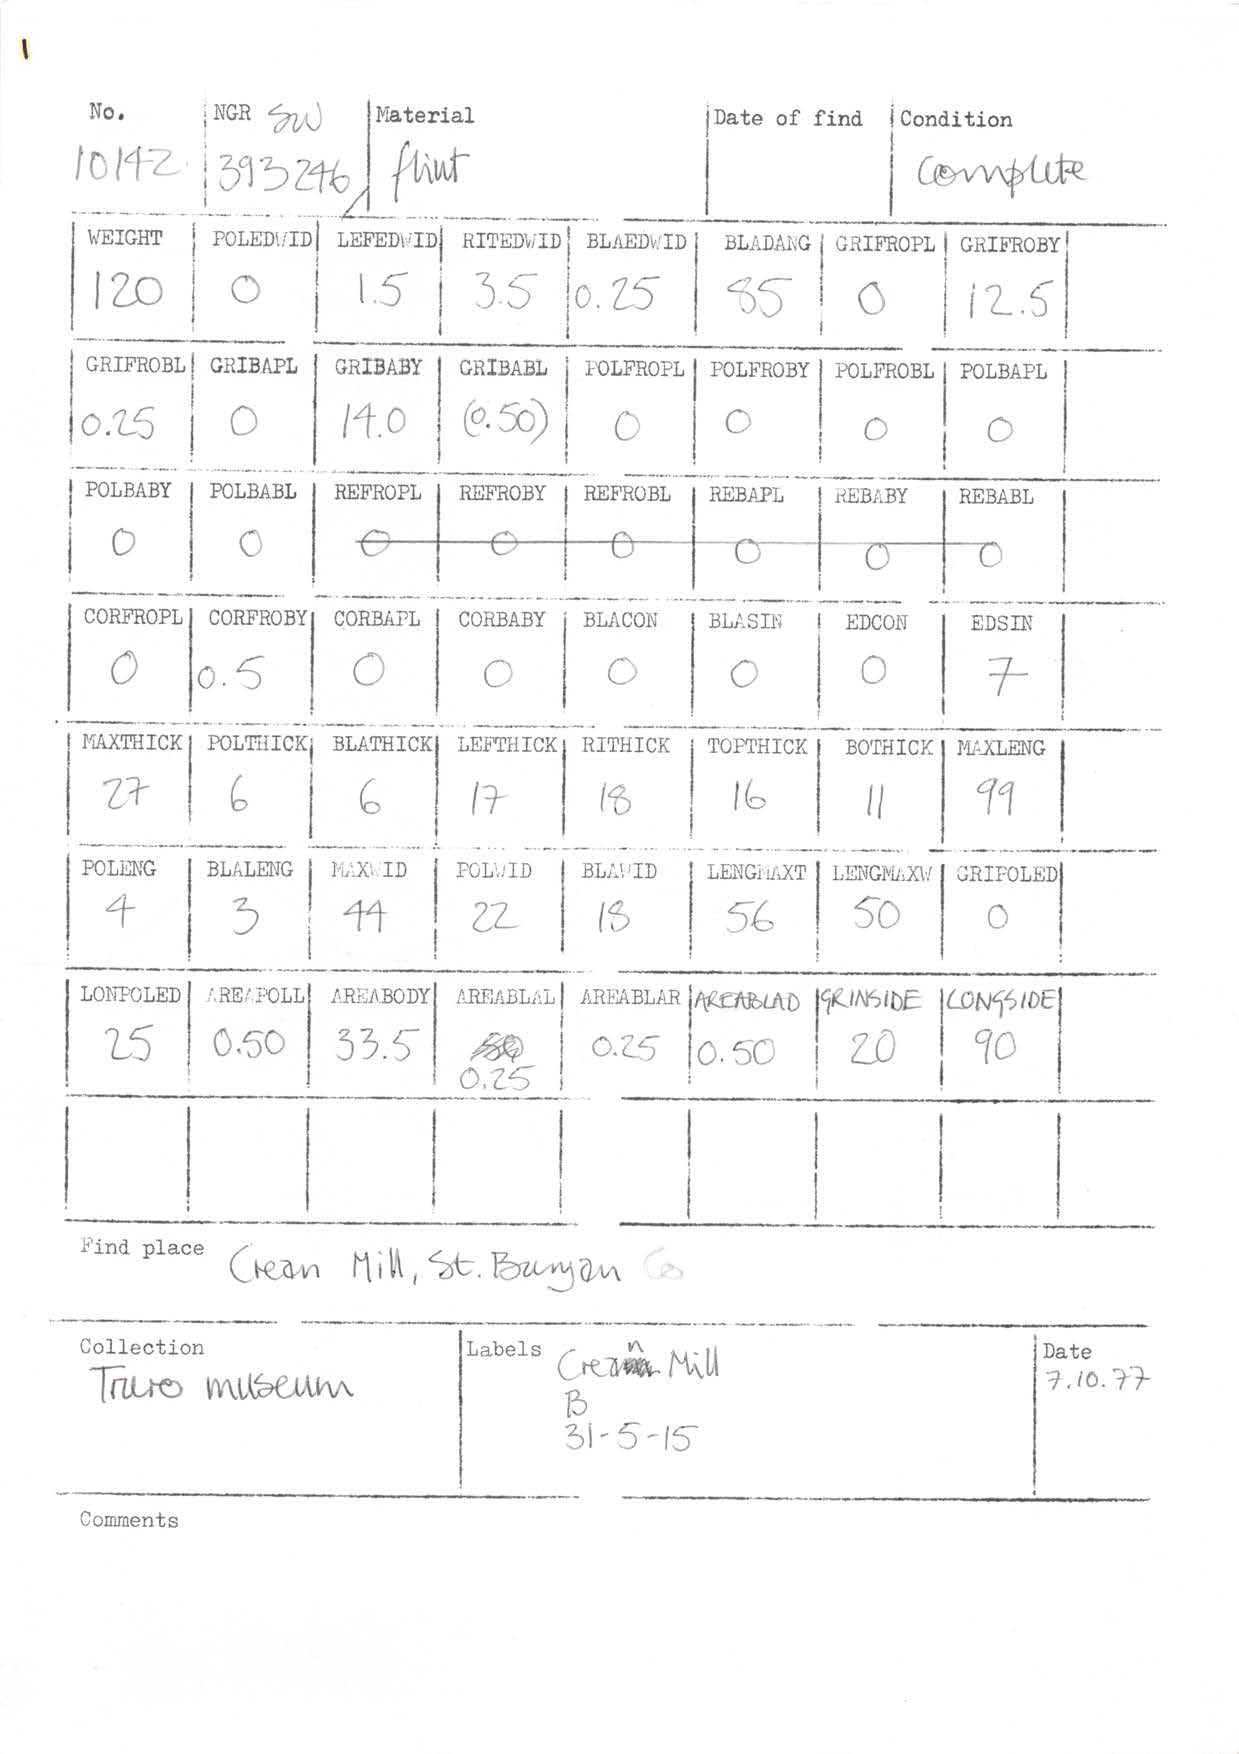 1
No. NGR SW Material Date of find Condition
10142 393246 flint complete
WEIGHT POLEDWID LEFEDWID RITEDWID BLAEDWID BLADANG GRIFROPL GRIFROBY
120 0 1.5 3.5 0.25 85 0 12.5
GRIFROBL GRIBAPL GRIBABY GRIBABL POLFROPL POLFROBY POLFROBL POLBAPL
0.25 0 14.0 (0.50) 0 0 0 0
POLBABY POLBABL REFROPL REFROBY REFROBL REBAPL REBABY REBABL
0 0 0 0 0 0 0 0
CORFROPL CORFROBY CORBAPL CORBABY BLACON BLASIN EDCON EDSIN
0 0.5 0 0 0 0 0 7
MAXTHICK POLTHICK BLATHICK LEFTHICK RITHICK TOPTHICK BOTHICK MAXLENG
27 6 6 17 18 16 11 99
POLENG BLALENG MAXWID POLWID BLAWID LENGMAXT LENGMAXW GRIPOLED
4 3 44 22 18 56 50 0
LONPOLED AREAPOLL AREABODY AREABLAL AREABLAR AREABLAD GRINSIDE LONGSIDE
25 0.50 33.5 0.25 0.50 20 90
0.25
Find place Crean Mill, St. Bunyan Co
Collection Labels Crean Mill Date
Truro museum B 7.10.77
31-5-15
Comments